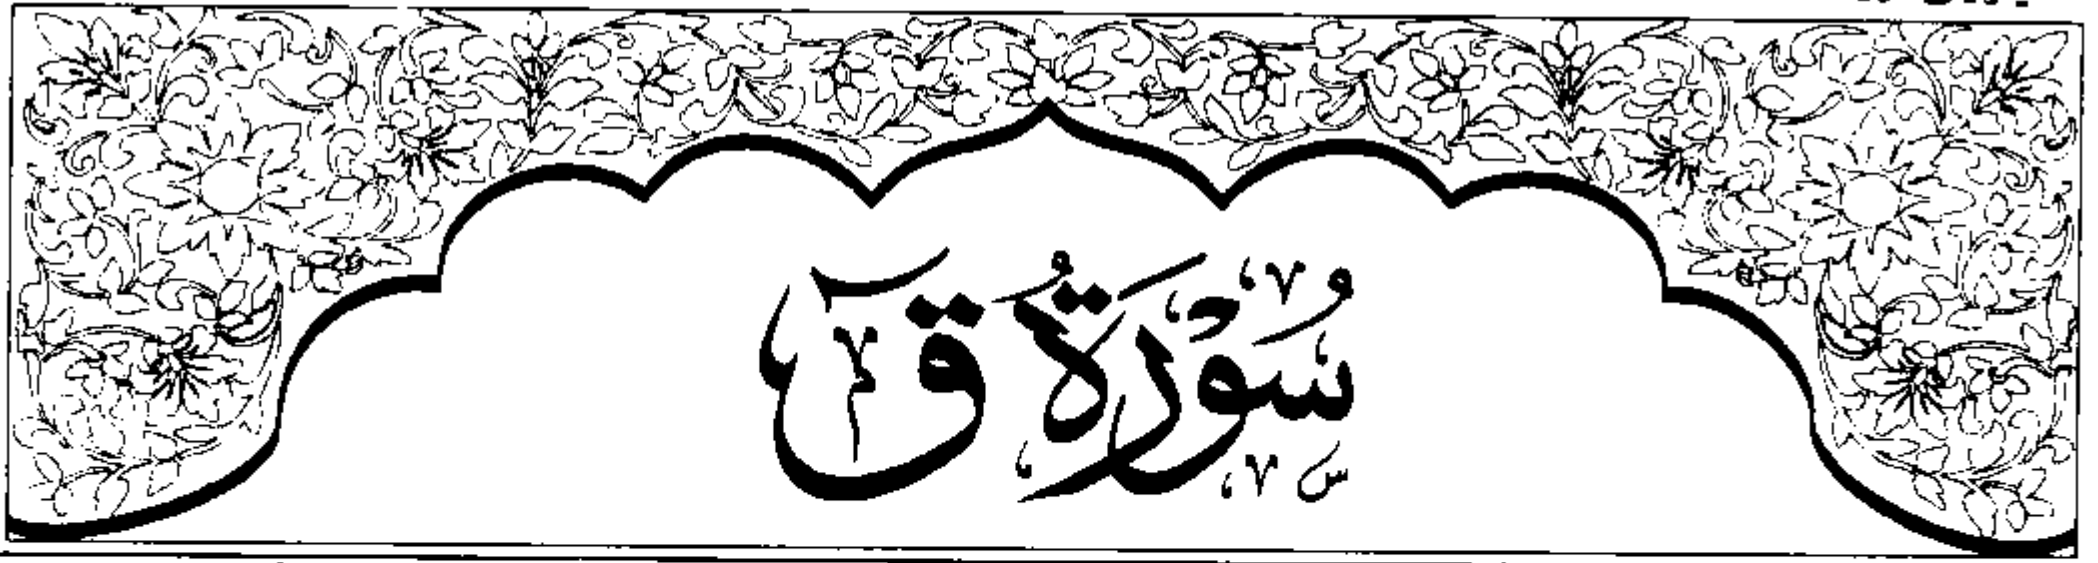 سُوْرَةُ قٓ